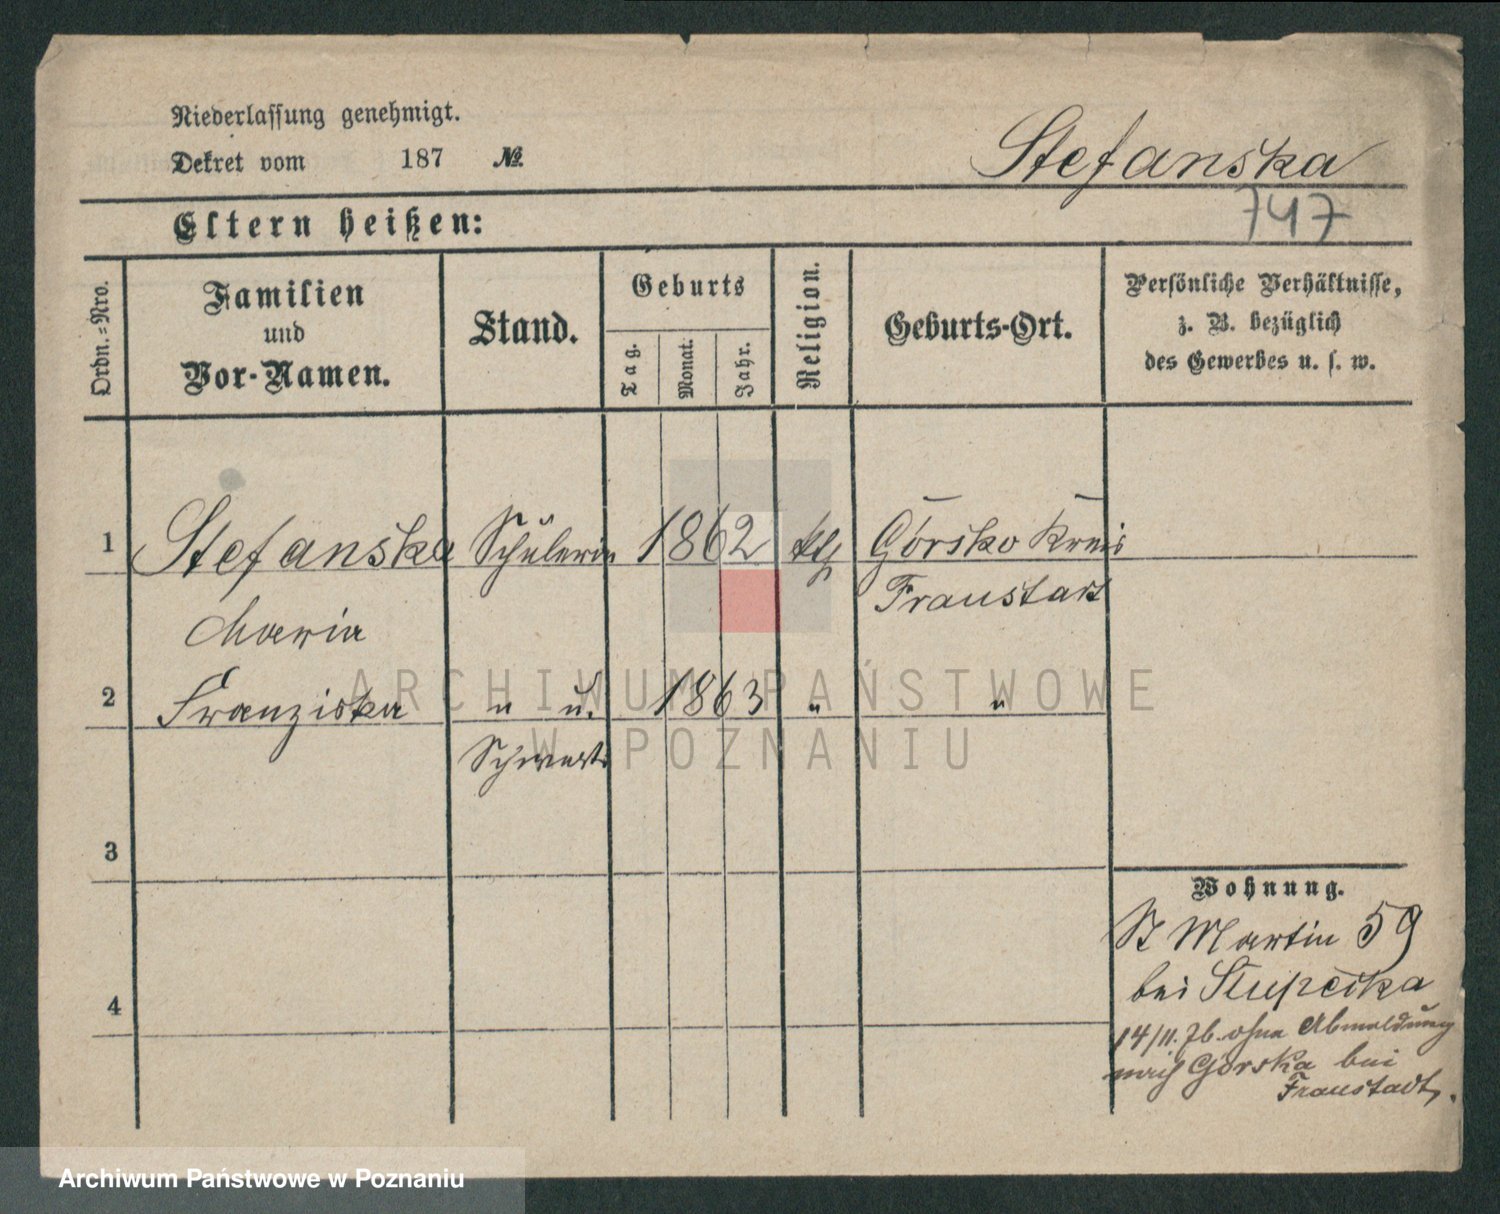 Niederlassung genehmigt.
Dekret vom 187 №
Stefanska
747
Eltern heißen:
Ordn.=Nro.
Familien
und
Vor-Namen.
Stand.
Geburts
Tag.
Monat.
Jahr.
Religion.
Geburts-Ort.
Persönliche Verhältnisse,
z. B. bezüglich
des Gewerbes u. s. w.
1 Stefanska Schülerin 1862 kth Górsko Kreis
Fraustadt
Maria
2 Franziska " u. 1863 " "
Schwester
3
4
Wohnung.
St Martin 59
bei Slupecka
14/11. 76. ohne Abmeldung
nach Górska bei
Fraustadt.
ARCHIWUM PAŃSTWOWE
W POZNANIU
Archiwum Państwowe w Poznaniu